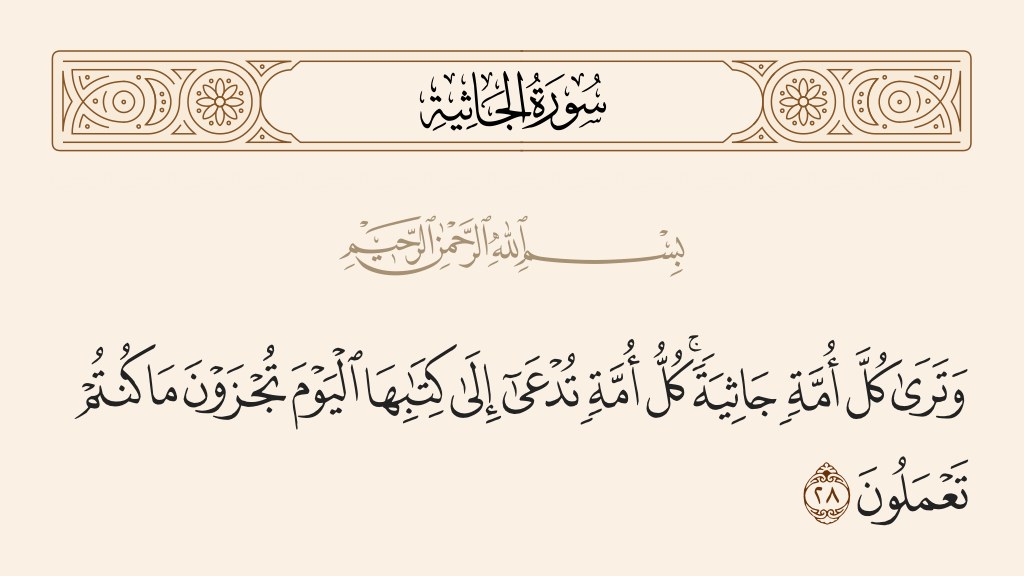 سُورَةُ الجَاثِيَةِ
بِسْمِ ٱللَّهِ ٱلرَّحْمَٰنِ ٱلرَّحِيمِ
وَتَرَىٰ كُلَّ أُمَّةٍ جَاثِيَةً ۚ كُلُّ أُمَّةٍ تُدْعَىٰٓ إِلَىٰ كِتَٰبِهَا ٱلْيَوْمَ تُجْزَوْنَ مَا كُنتُمْ
تَعْمَلُونَ ٢٨